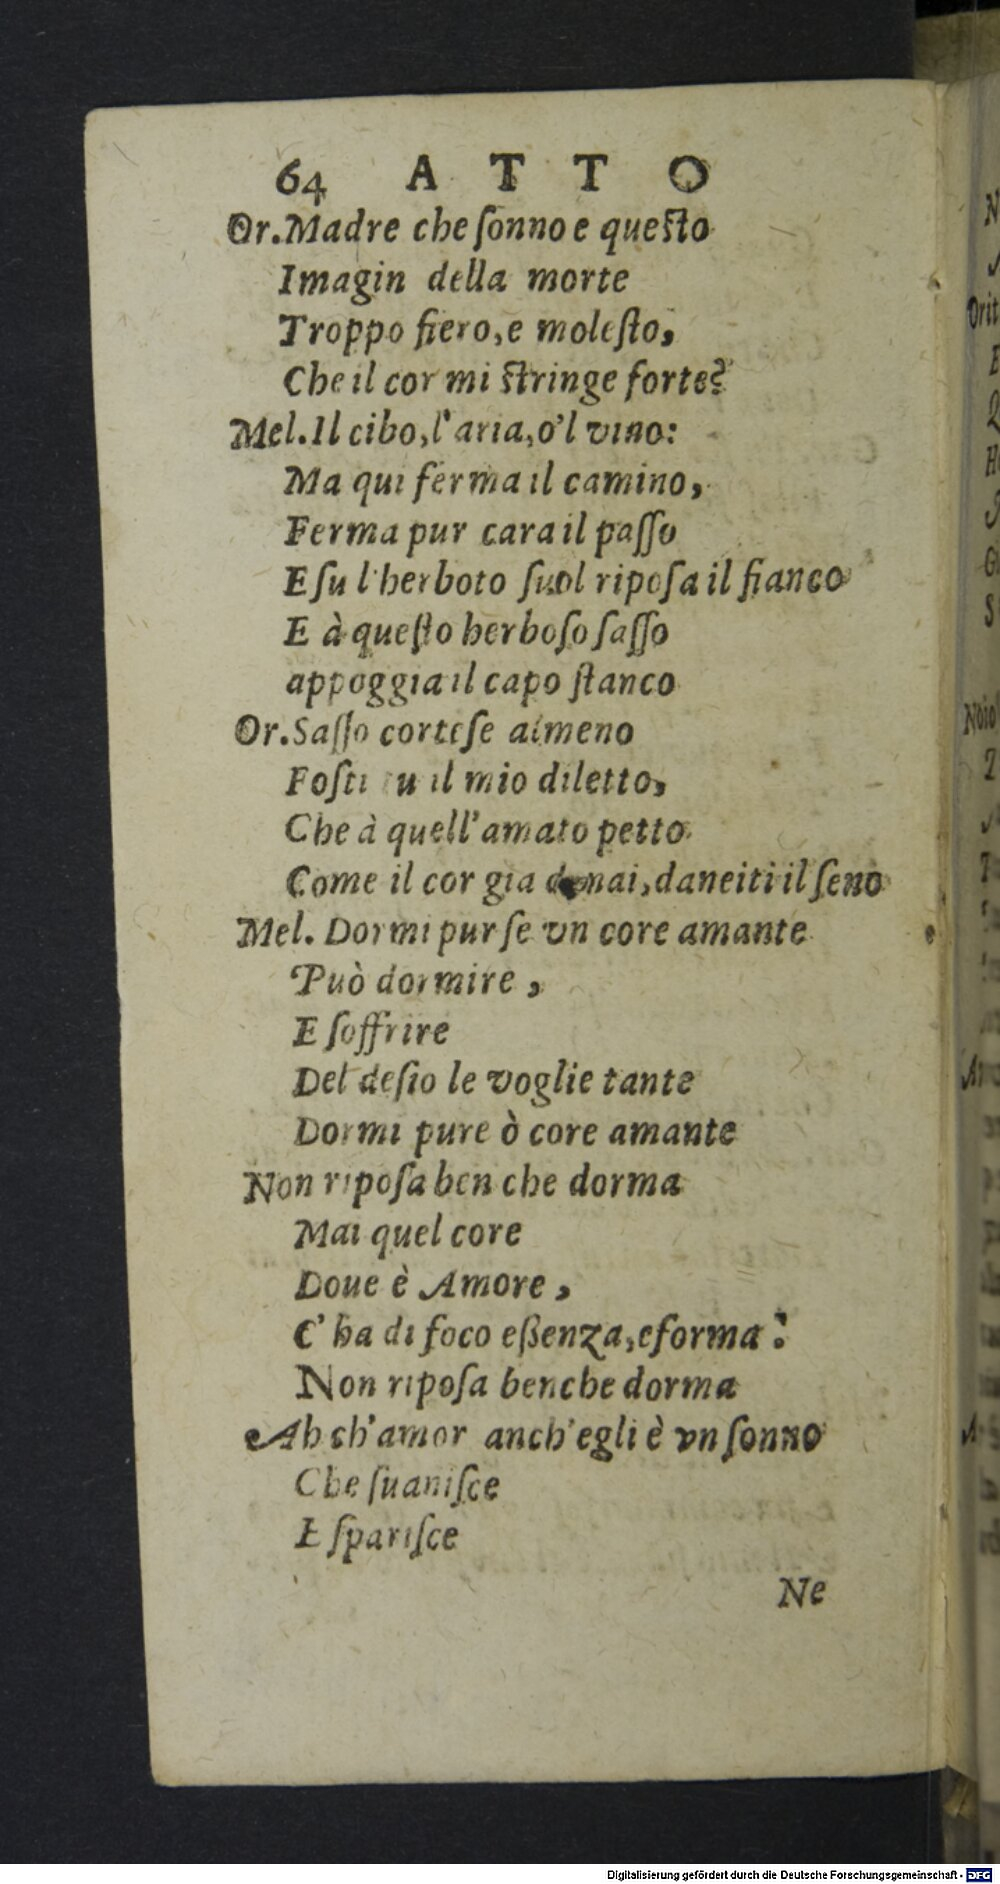 64 ATTO
Or. Madre che ſonno e queſto
Imagin della morte
Troppo fiero, e moleſto,
Che il cor mi ſtringe forte?
Mel. Il cibo, l'aria, o'l vino:
Ma qui ferma il camino,
Ferma pur cara il paſſo
E ſu l'herboto ſuol ripoſa il fianco
E à queſto herboſo ſaſſo
appoggia il capo ſtanco
Or. Saſſo corteſe almeno
Foſti u il mio diletto,
Che à quell'amato petto
Come il cor gia donai, daneiti il ſeno
Mel. Dormi pur ſe vn core amante
Può dormire,
E ſoffrire
Del deſio le voglie tante
Dormi pure ò core amante
Non ripoſa ben che dorma
Mai quel core
Doue è Amore,
C'ha di foco eßenza, e forma?
Non ripoſa benche dorma
Ah ch'amor anch'egli è vn ſonno
Che ſuaniſce
E ſpariſce
Ne
Digitalisierung gefördert durch die Deutsche Forschungsgemeinschaft - DFG